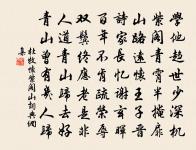 學他趨世少深機
紫閣青霄半掩扉
山路遠懷王子晉
詩家長憶謝玄暉
百年不肯疏榮辱
雙鬢終應老是非
人道青山歸去好
青山曾有幾人歸
杜牧懷紫閣山詞典網
集